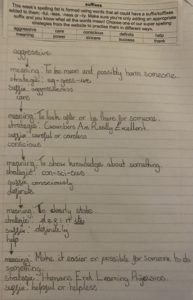 suffixes
This week's spelling list is formed using words that all could have a suffix/suffixes
added to them: -ful, -less, -ness or -ly. Make sure you're only adding an appropriate
suffix and you know what all the words mean! Choose one of our super spelling
strategies from the website to practise them in different ways.
aggressive care conscious definite help
meaning power sincere success thank
aggressive
↓
meaning: To be mean and possibly harm someone.
strategie: ag-gress-ive
suffix: aggressiveness
care
↓
meaning: To look after or be there for someone.
strategie: Cucumbers Are Really Excellent.
suffix: careful or careless
conscious
↓
meaning: To show knowledge about something.
strategie: con-sci-ous
suffix: consciously
definite
↓
meaning: To clearly state.
strategie:
suffix: definitely
help
↓
meaning: Make it easier or possible for someone to do
something.
strategie: Humans Enjoy Learning
suffix: helpful or helpless